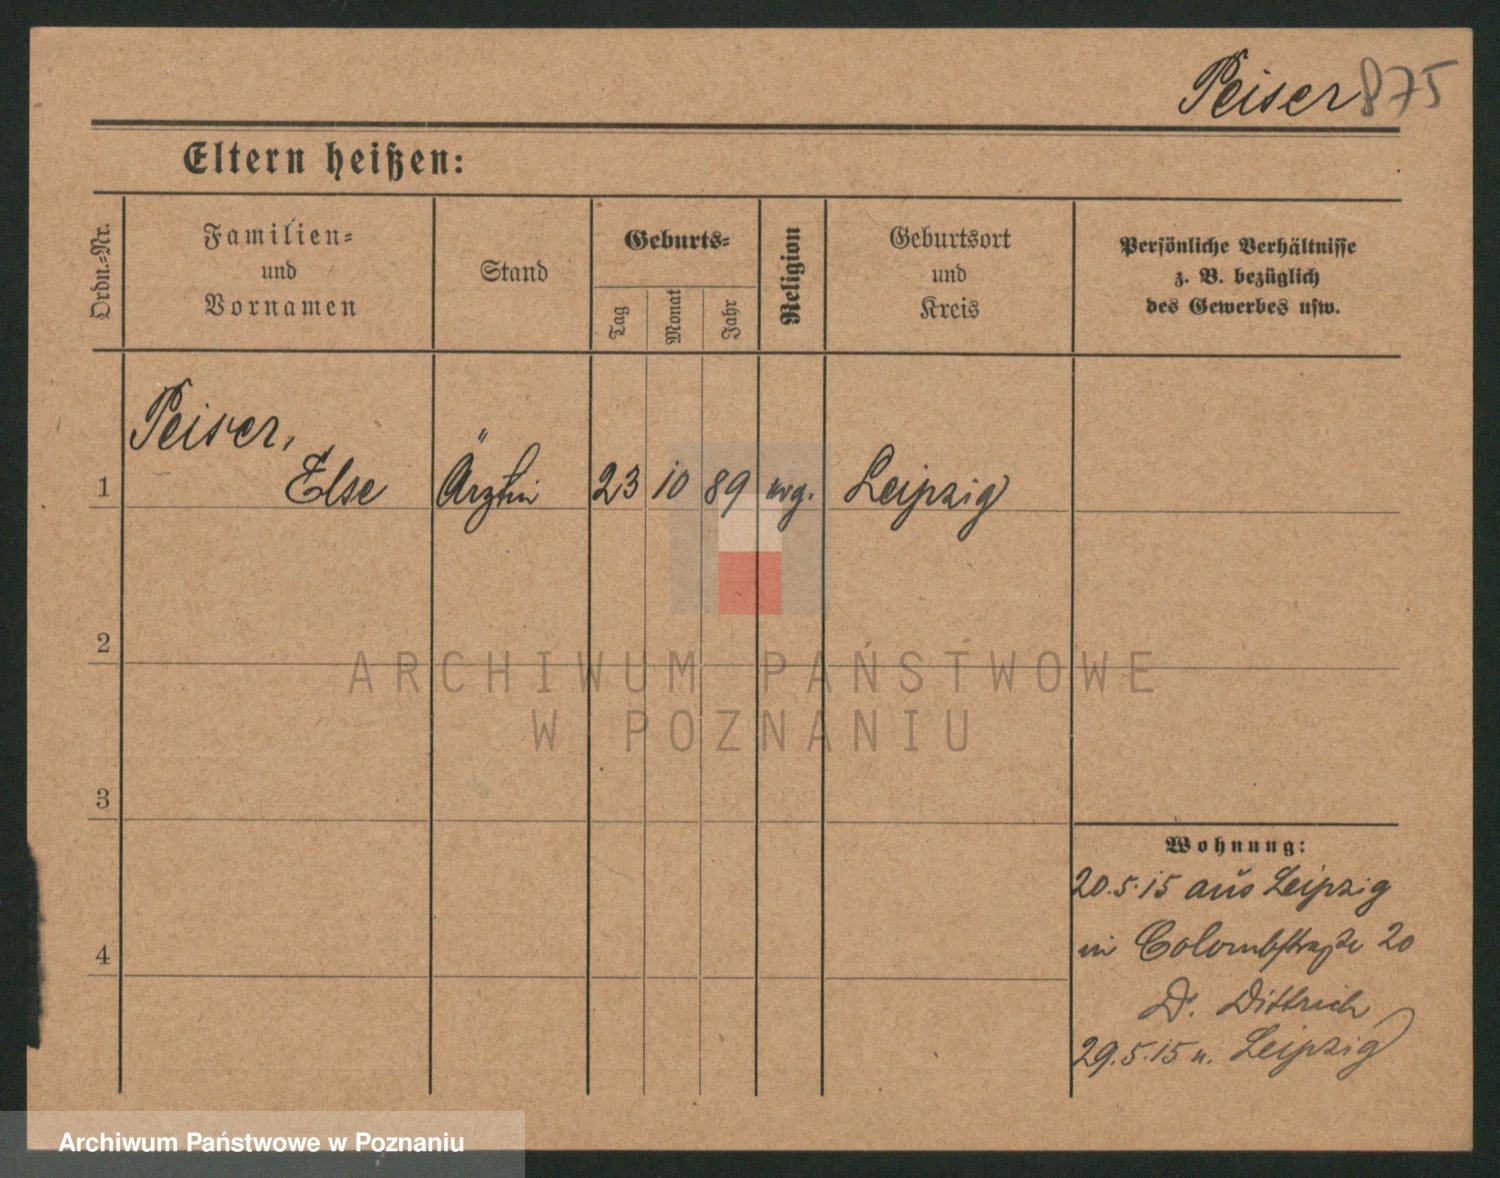 Peiser 875
Eltern heißen:
Ordn.-Nr.
Familien-
und
Vornamen
Stand
Geburts-
Tag
Monat
Jahr
Religion
Geburtsort
und
Kreis
Persönliche Verhältnisse
z. B. bezüglich
des Gewerbes usw.
Peiser,
1 Else Ärztin 23 10 89 Leipzig
2
3
4
Wohnung:
20.5.15 aus Leipzig
in Colombstraße 20
Dr. Dittrich
29.5.15 n. Leipzig
ARCHIWUM PAŃSTWOWE
W POZNANIU
Archiwum Państwowe w Poznaniu